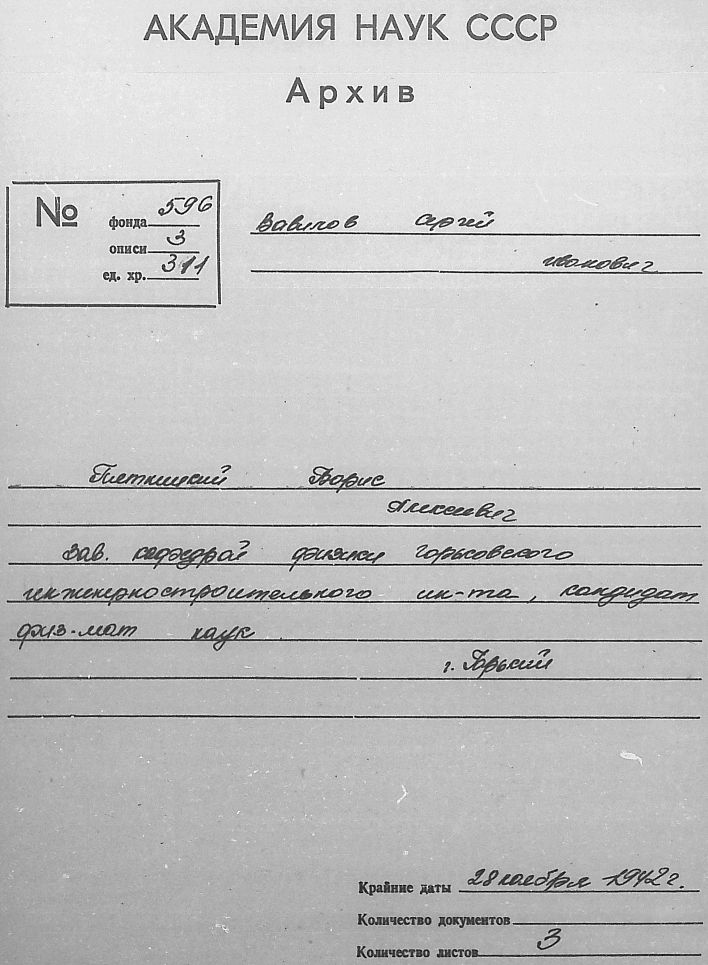 АКАДЕМИЯ НАУК СССР
Архив
№
фонда 596
описи 3
ед. хр. 311
Вавилов Сергей
Иванович
Пяткицкий Борис
Алексеевич
Зав. кафедрой физики Горьковского
инженерностроительного ин-та, кандидат
физ-мат наук
г. Горький
Крайние даты 28 ноября 1942 г.
Количество документов
Количество листов 3